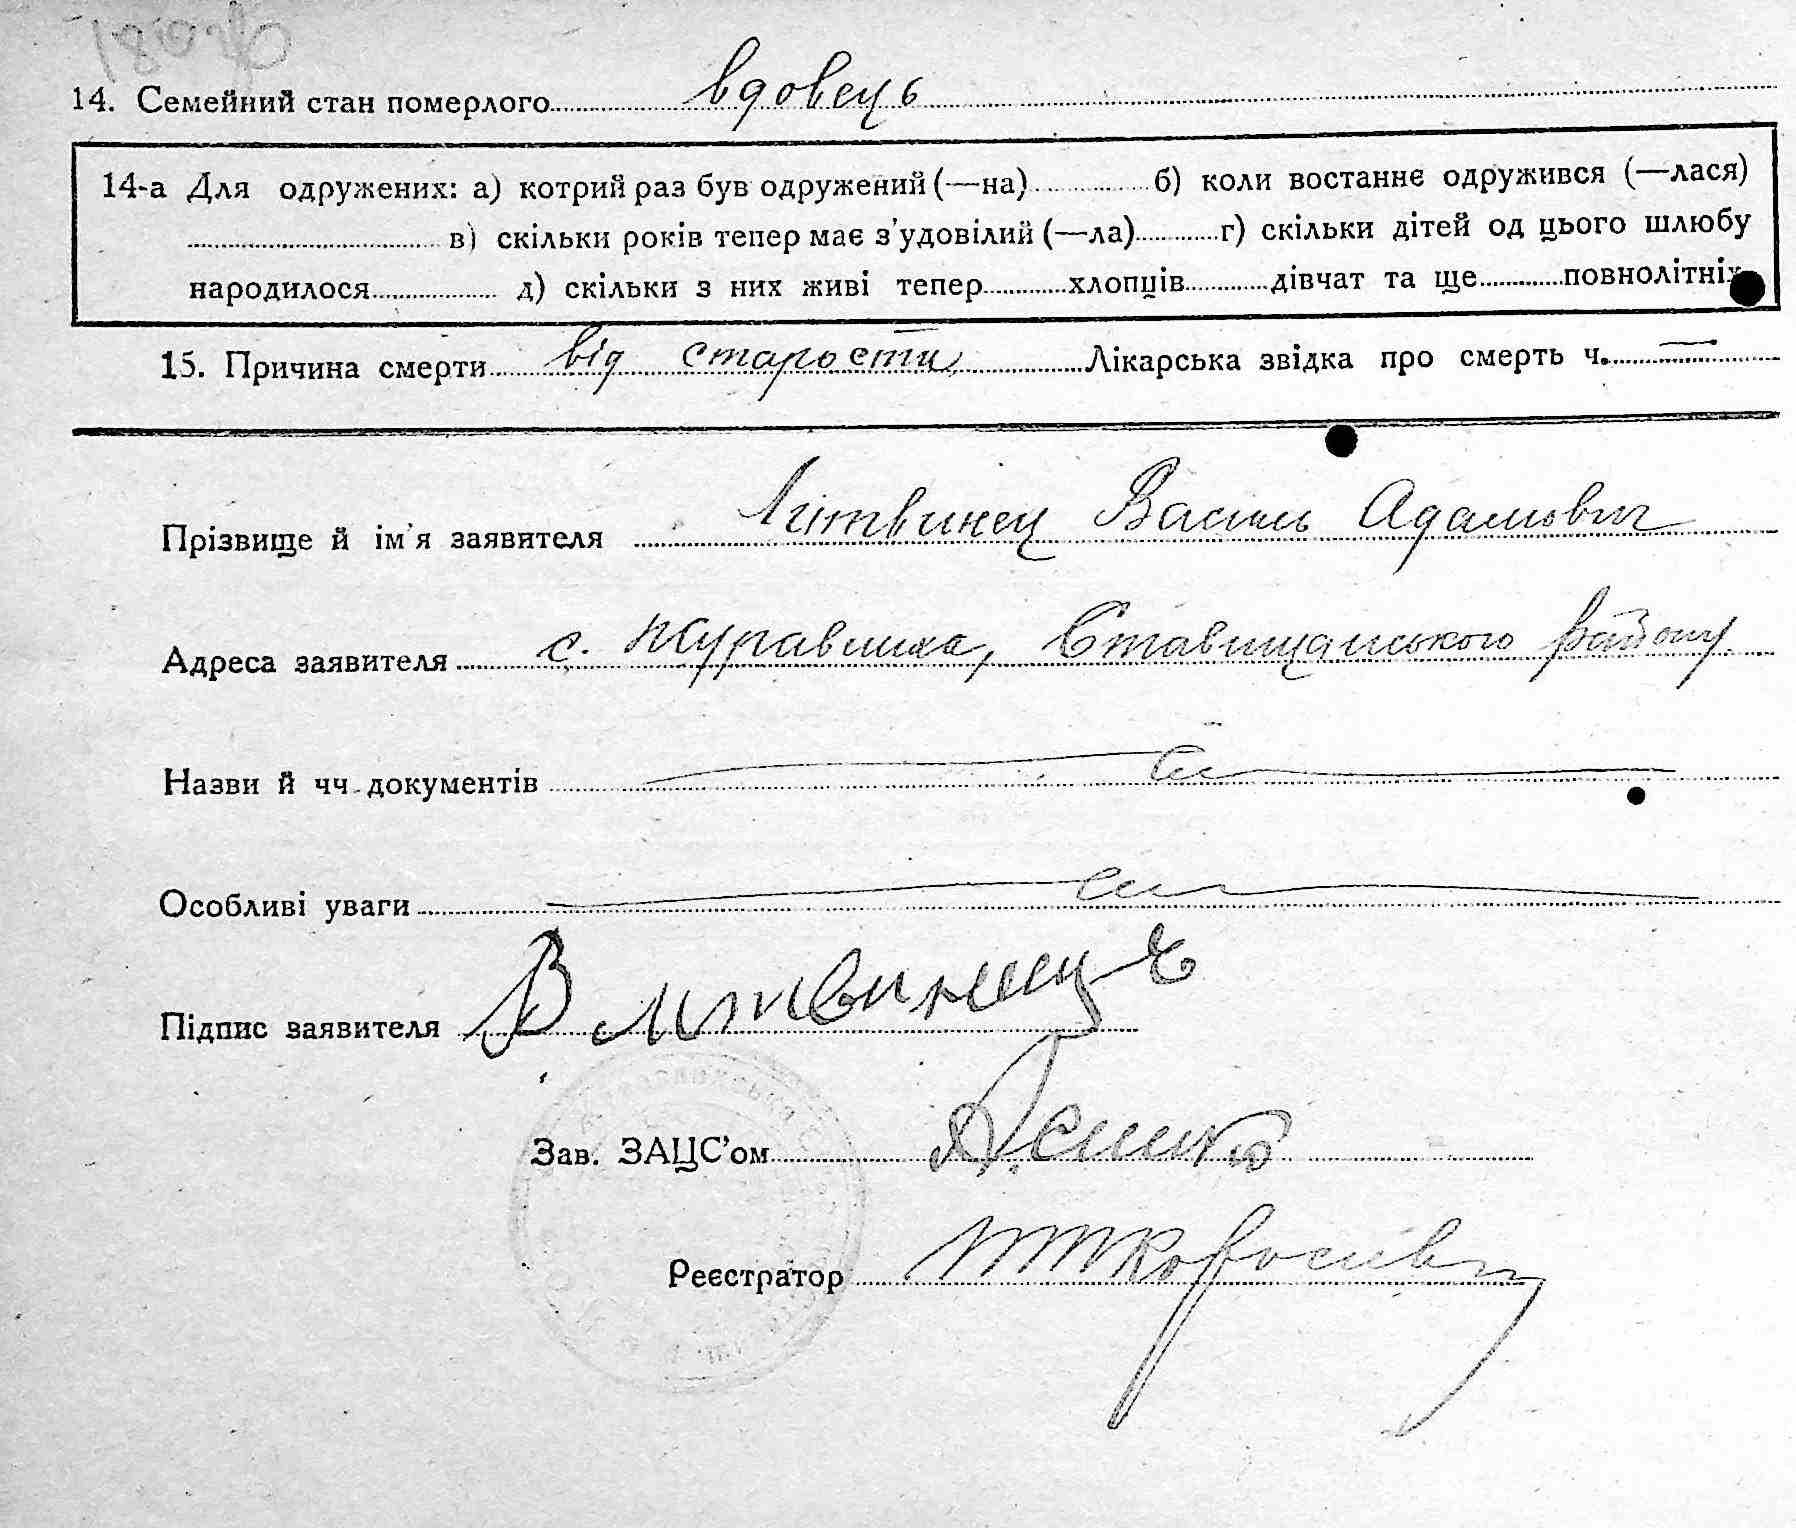 14. Семейний стан померлого вдовець
14-а Для одружених: а) котрий раз був одружений (—на) б) коли востаннє одружився (—лася)
в) скільки років тепер має з’удовілий (—ла) г) скільки дітей од цього шлюбу
народилося д) скільки з них живі тепер хлопців дівчат та ще повнолітніх
15. Причина смерти від старости Лікарська звідка про смерть ч. —
Прізвище й ім’я заявителя Літвинец Василь Адамович
Адреса заявителя с. Журавлиха, Ставищанського району
Назви й чч документів
Особливі уваги
Підпис заявителя В литвинець
Зав. ЗАЦС’ом
Реєстратор